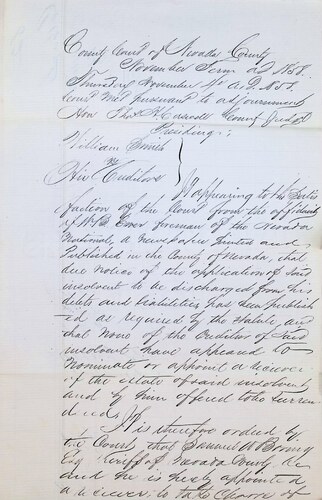 County Court of Nevada County
November Term AD 1858.
Thursday November 4th A.D. 1858.
Court met pursuant to adjournment
Hon Presiding:
William Smith
vs
His Creditors
It appearing to the satis
faction of the Court from the affidavit
of foreman of the Nevada
National, a Newspaper printed and
Published in the County of Nevada, that
due notice of the application of said
insolvent to be discharged from his
debts and liabilities has been publish
ed as required by the statute, and
that None of the Creditors of said
insolvent have appeared to
Nominate or appoint a receiver
of the estate of said insolvent
and by him offered to be surren
dered.
It is therefore ordered by
the Court, that Samuel W Boring
Esq Sheriff of Nevada County, be
and he is hereby appointed
a receiver to take charge of